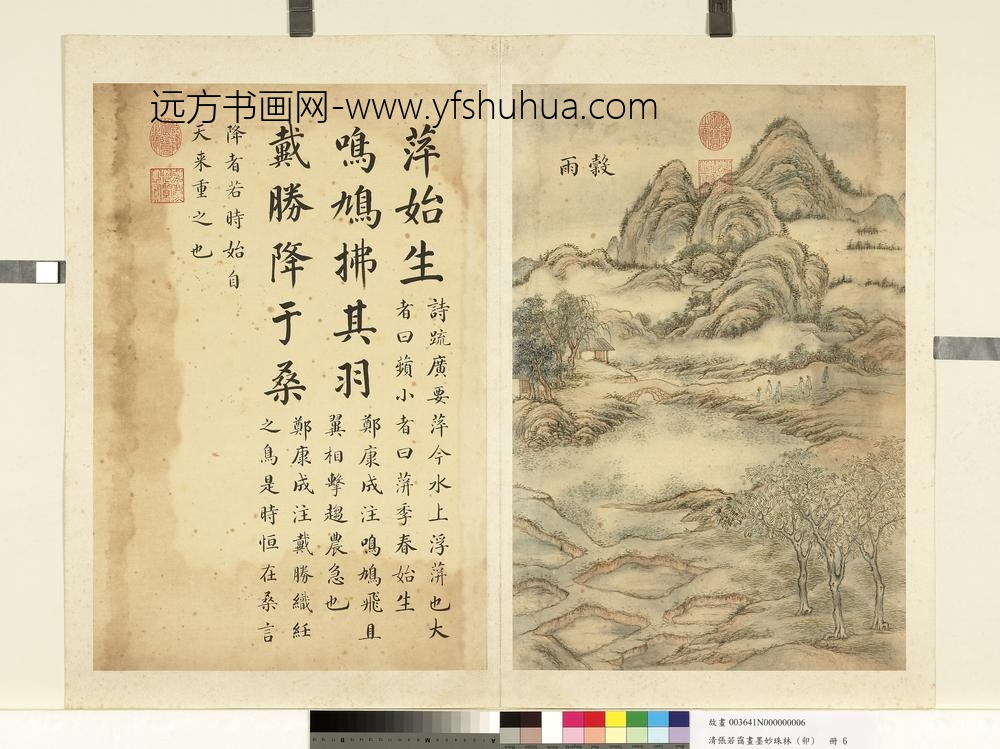 远方书画网-www.yfshuhua.com
穀雨
萍始生
詩疏廣要萍今水上浮蓱也大
者曰蘋小者曰蓱季春始生
鳴鳩拂其羽
鄭康成注鳴鳩飛且
翼相擊趨農急也
戴勝降于桑
鄭康成注戴勝織紝
之鳥是時恒在桑言
降者若時始自
天来重之也
故畫 003641N000000006
清張若靄畫墨妙珠林（卯） 冊 6